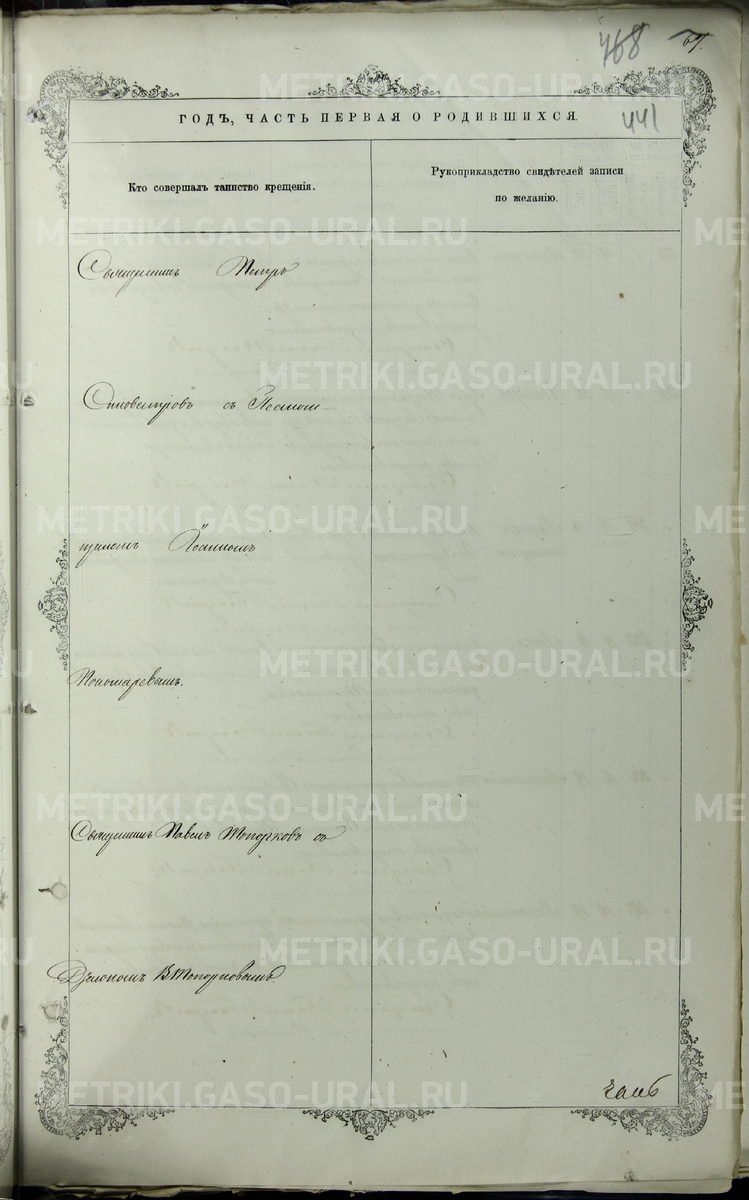 468
67.
441
ГОДЪ, ЧАСТЬ ПЕРВАЯ О РОДИВШИХСЯ.
Кто совершалъ таинство крещенія.
Рукоприкладство свидѣтелей записи
по желанію.
Священникъ Петръ
Сильвестровъ съ Псалом-
щикомъ Іоанномъ
Пономаревымъ.
Священникъ Павелъ Топорковъ съ
Дьякономъ В Топорковымъ
METRIKI.GASO-URAL.RU